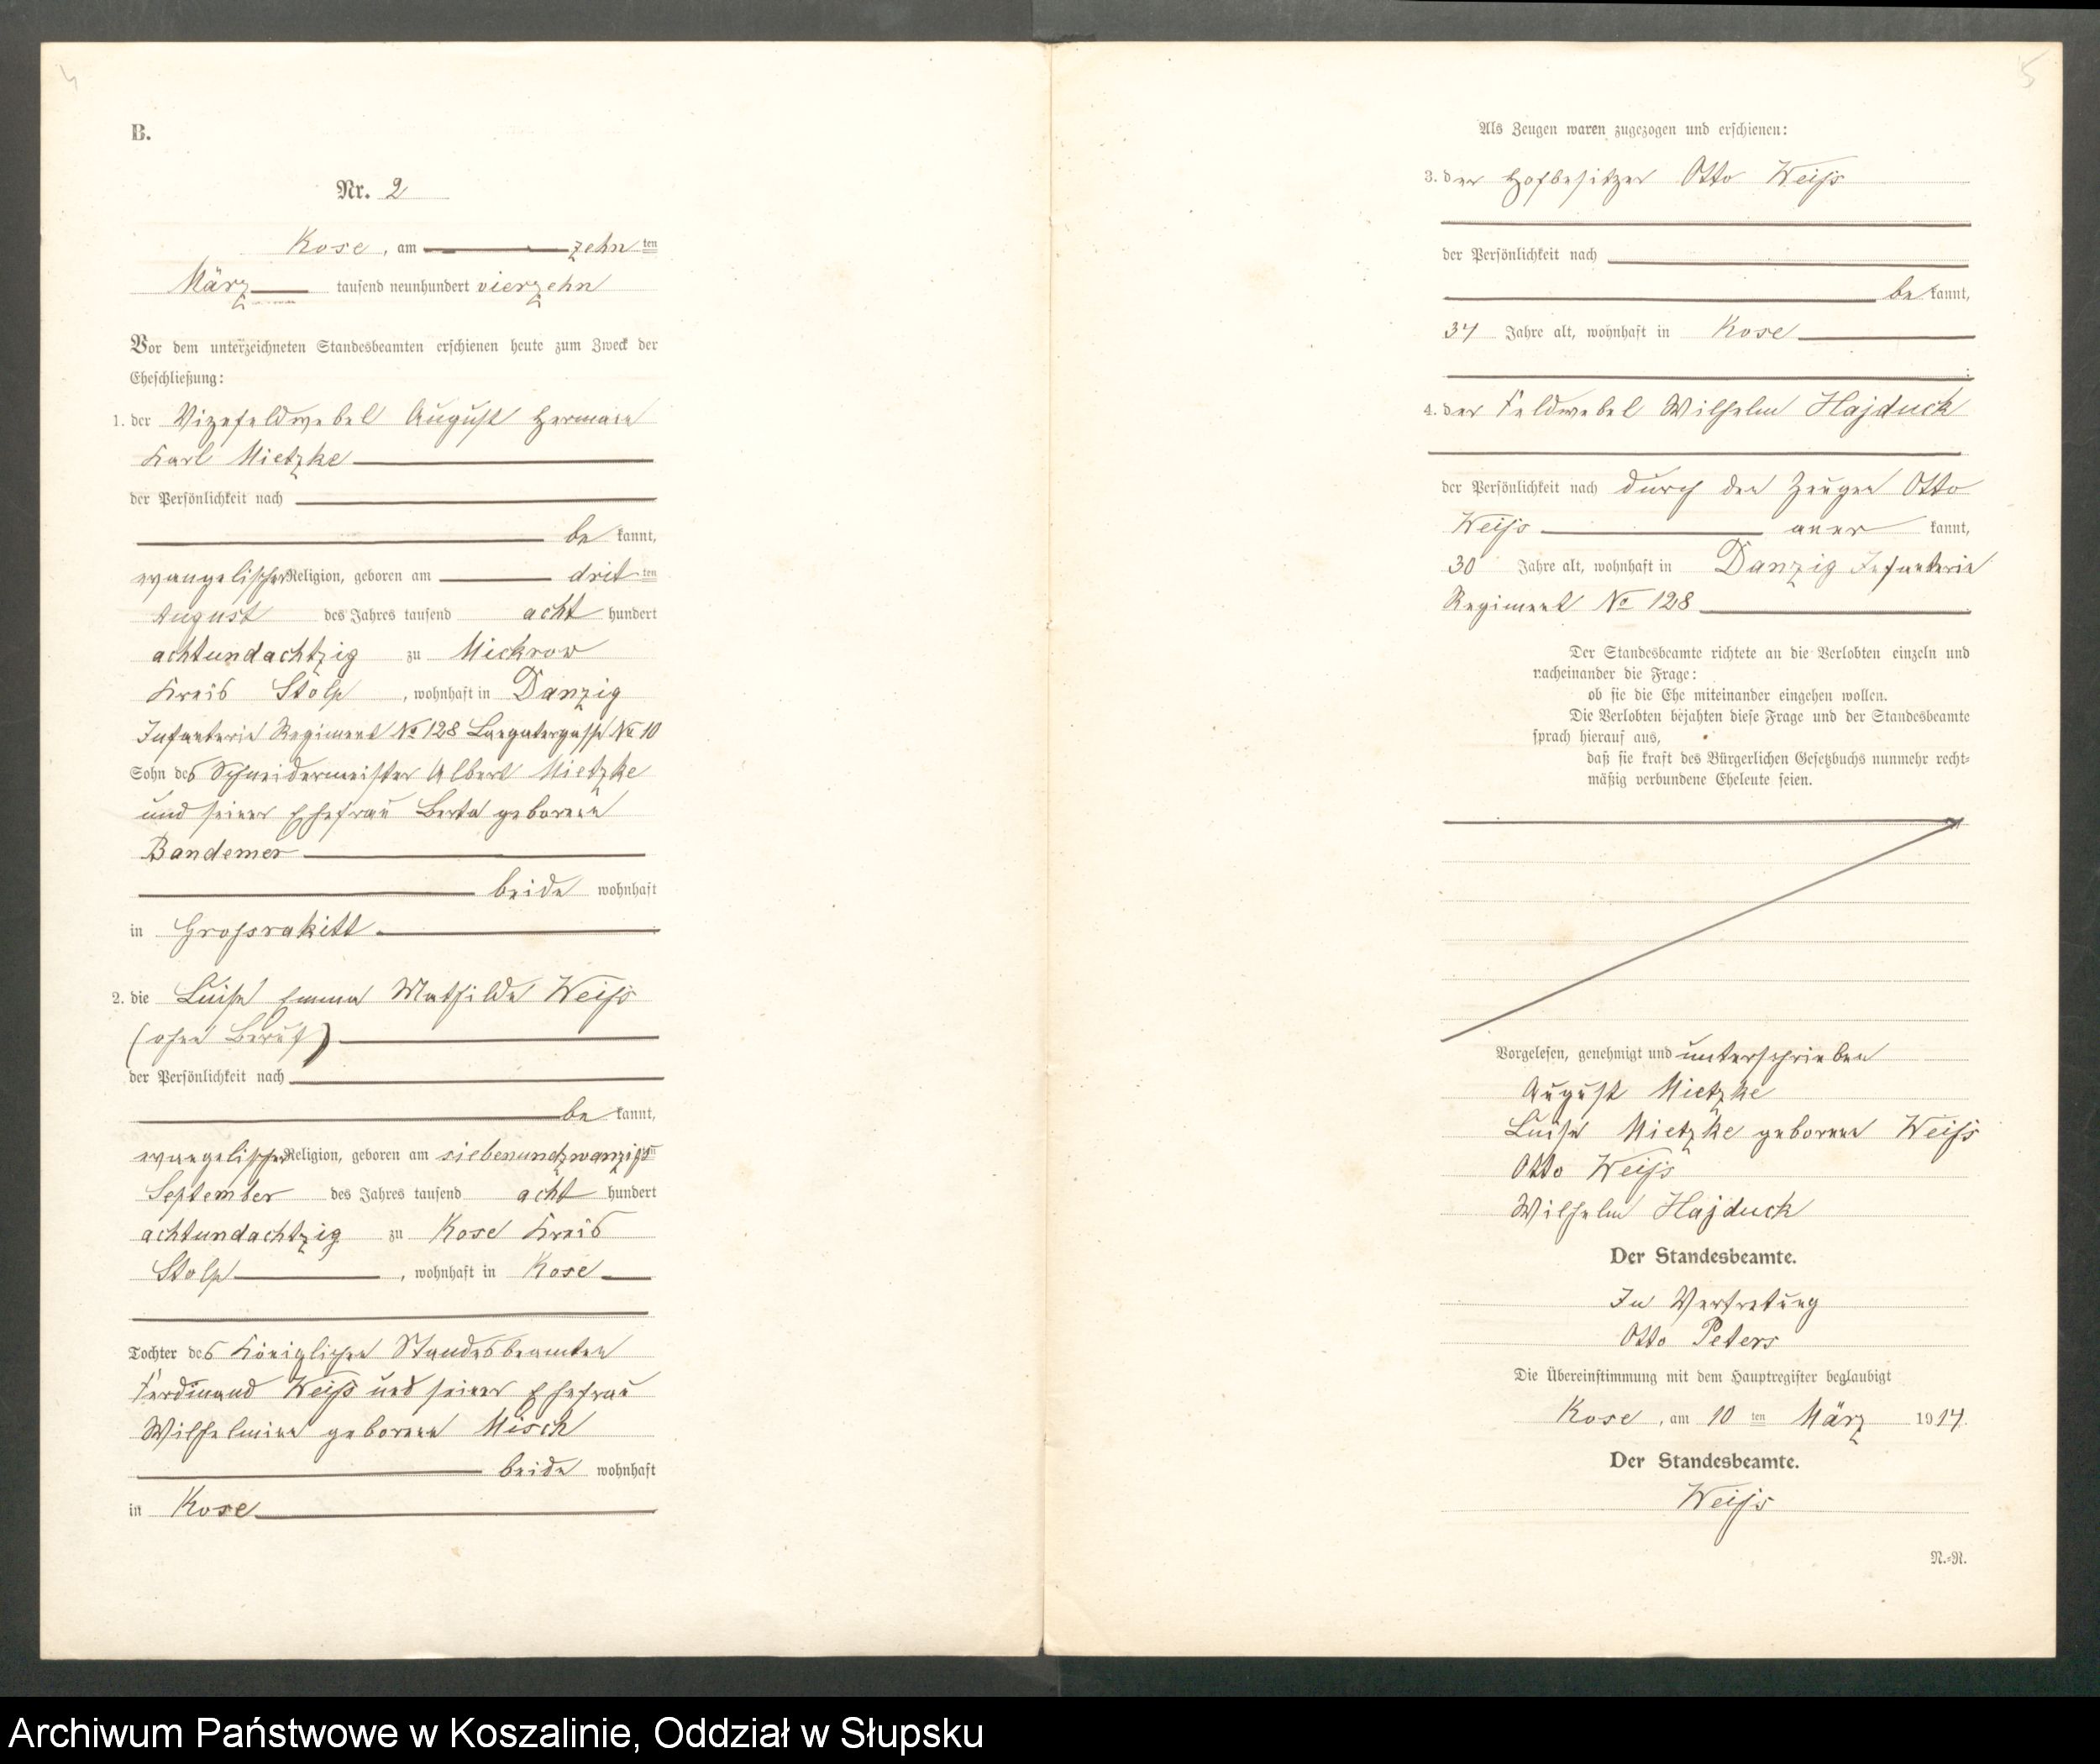 4
B.
Nr. 2
Kose, am zehn ten
März tausend neunhundert vierzehn
Vor dem unterzeichneten Standesbeamten erschienen heute zum Zweck der
Eheschließung:
1. der Vizefeldwebel August Hermann
Karl Mietzke
der Persönlichkeit nach
be kannt,
evangelischer Religion, geboren am drit ten
August des Jahres tausend acht hundert
achtundachtzig zu Mickrow
Kreis Stolp, wohnhaft in Danzig
Infanterie Regiment No 128 No 10
Sohn des Schneidermeister Albert Mietzke
und seiner Ehefrau Berta geborenen
Bandemer
beide wohnhaft
in Grossrakitt
2. die Luise Emma Mathilde Weiss
(ohne Beruf)
der Persönlichkeit nach
be kannt,
evangelischer Religion, geboren am siebenundzwanzigsten
September des Jahres tausend acht hundert
achtundachtzig zu Kose Kreis
Stolp, wohnhaft in Kose
Tochter des Königlichen Standesbeamten
Ferdinand Weiss und seiner Ehefrau
Wilhelmine geborene Misch
beide wohnhaft
in Kose
5
Als Zeugen waren zugezogen und erschienen:
3. der Hofbesitzer Otto Weiss
der Persönlichkeit nach
be kannt,
34 Jahre alt, wohnhaft in Kose
4. der Feldwebel Wilhelm Hajduck
der Persönlichkeit nach durch den Zeugen Otto
Weiss aner kannt,
30 Jahre alt, wohnhaft in Danzig Infanterie
Regiment No 128
Der Standesbeamte richtete an die Verlobten einzeln und
nacheinander die Frage:
ob sie die Ehe miteinander eingehen wollen.
Die Verlobten bejahten diese Frage und der Standesbeamte
sprach hierauf aus,
daß sie kraft des Bürgerlichen Gesetzbuchs nunmehr recht-
mäßig verbundene Eheleute seien.
Vorgelesen, genehmigt und unterschrieben
August Mietzke
Luise Mietzke geborene Weiss
Otto Weiss
Wilhelm Hajduck
Der Standesbeamte.
In Vertretung
Otto Peters
Die Übereinstimmung mit dem Hauptregister beglaubigt
Kose, am 10 ten März 1914.
Der Standesbeamte.
Weiss
N.-R.
Archiwum Państwowe w Koszalinie, Oddział w Słupsku